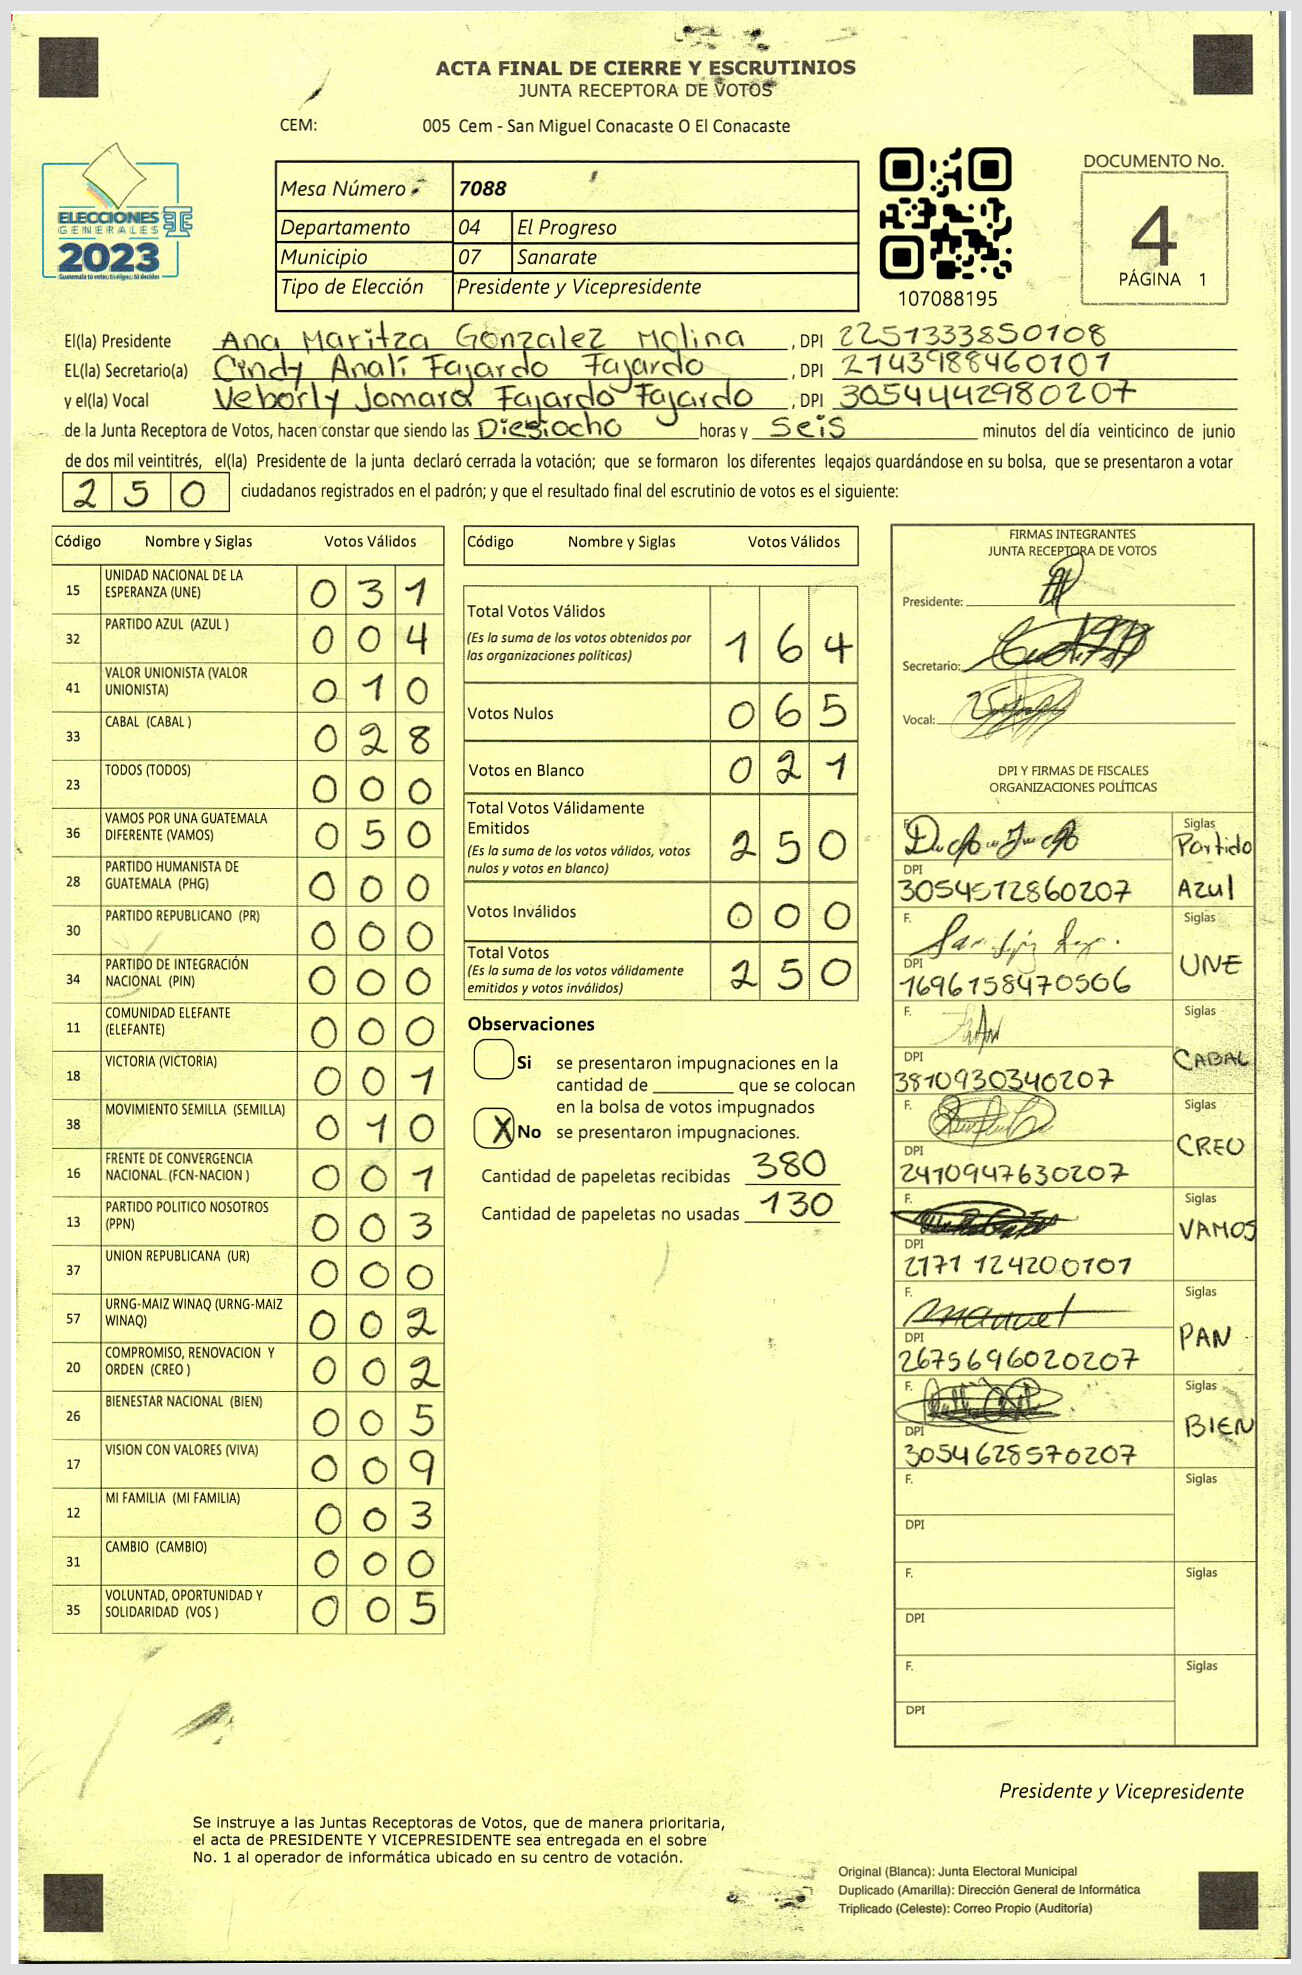 ACTA FINAL DE CIERRE Y ESCRUTINIOS
JUNTA RECEPTORA DE VOTOS
CEM: 005 Cem - San Miguel Conacaste O El Conacaste
ELECCIONES
GENERALES
2023
Mesa Número 7088
Departamento 04 El Progreso
Municipio 07 Sanarate
Tipo de Elección Presidente y Vicepresidente
107088195
DOCUMENTO No.
4
PÁGINA 1
El(la) Presidente Ana Maritza Gonzalez Molina, DPI 2251333850108
EL(la) Secretario(a) Cindy Analí Fajardo Fajardo, DPI 2143988460101
y el(la) Vocal Veborly Jomara Fajardo Fajardo, DPI 3054442980207
de la Junta Receptora de Votos, hacen constar que siendo las Diesiocho horas y Seis minutos del día veinticinco de junio
de dos mil veintitrés, el(la) Presidente de la junta declaró cerrada la votación; que se formaron los diferentes legajos guardándose en su bolsa, que se presentaron a votar
250 ciudadanos registrados en el padrón; y que el resultado final del escrutinio de votos es el siguiente:
Código Nombre y Siglas Votos Válidos
15 UNIDAD NACIONAL DE LA ESPERANZA (UNE) 031
32 PARTIDO AZUL (AZUL ) 004
41 VALOR UNIONISTA (VALOR UNIONISTA) 010
33 CABAL (CABAL ) 028
23 TODOS (TODOS) 000
36 VAMOS POR UNA GUATEMALA DIFERENTE (VAMOS) 050
28 PARTIDO HUMANISTA DE GUATEMALA (PHG) 000
30 PARTIDO REPUBLICANO (PR) 000
34 PARTIDO DE INTEGRACIÓN NACIONAL (PIN) 000
11 COMUNIDAD ELEFANTE (ELEFANTE) 000
18 VICTORIA (VICTORIA) 001
38 MOVIMIENTO SEMILLA (SEMILLA) 010
16 FRENTE DE CONVERGENCIA NACIONAL (FCN-NACION ) 001
13 PARTIDO POLITICO NOSOTROS (PPN) 003
37 UNION REPUBLICANA (UR) 000
57 URNG-MAIZ WINAQ (URNG-MAIZ WINAQ) 002
20 COMPROMISO, RENOVACION Y ORDEN (CREO ) 002
26 BIENESTAR NACIONAL (BIEN) 005
17 VISION CON VALORES (VIVA) 009
12 MI FAMILIA (MI FAMILIA) 003
31 CAMBIO (CAMBIO) 000
35 VOLUNTAD, OPORTUNIDAD Y SOLIDARIDAD (VOS ) 005
Código Nombre y Siglas Votos Válidos
Total Votos Válidos 164
(Es la suma de los votos obtenidos por
las organizaciones políticas)
Votos Nulos 065
Votos en Blanco 021
Total Votos Válidamente
Emitidos 250
(Es la suma de los votos válidos, votos
nulos y votos en blanco)
Votos Inválidos 000
Total Votos 250
(Es la suma de los votos válidamente
emitidos y votos inválidos)
Observaciones
Si se presentaron impugnaciones en la
cantidad de ________ que se colocan
en la bolsa de votos impugnados
X No se presentaron impugnaciones.
Cantidad de papeletas recibidas 380
Cantidad de papeletas no usadas 130
FIRMAS INTEGRANTES
JUNTA RECEPTORA DE VOTOS
Presidente:
Secretario:
Vocal:
DPI Y FIRMAS DE FISCALES
ORGANIZACIONES POLÍTICAS
F. Siglas Partido Azul
DPI 3054512860207
F. Siglas UNE
DPI 1696158470506
F. Siglas CABAL
DPI 3810930340207
F. Siglas CREO
DPI 2410947630207
F. Siglas VAMOS
DPI 2171 124200101
F. manuel Siglas PAN
DPI 2675696020207
F. Siglas BIEN
DPI 3054628570207
F. Siglas
DPI
F. Siglas
DPI
F. Siglas
DPI
Presidente y Vicepresidente
Se instruye a las Juntas Receptoras de Votos, que de manera prioritaria,
el acta de PRESIDENTE Y VICEPRESIDENTE sea entregada en el sobre
No. 1 al operador de informática ubicado en su centro de votación.
Original (Blanca): Junta Electoral Municipal
Duplicado (Amarilla): Dirección General de Informática
Triplicado (Celeste): Correo Propio (Auditoría)